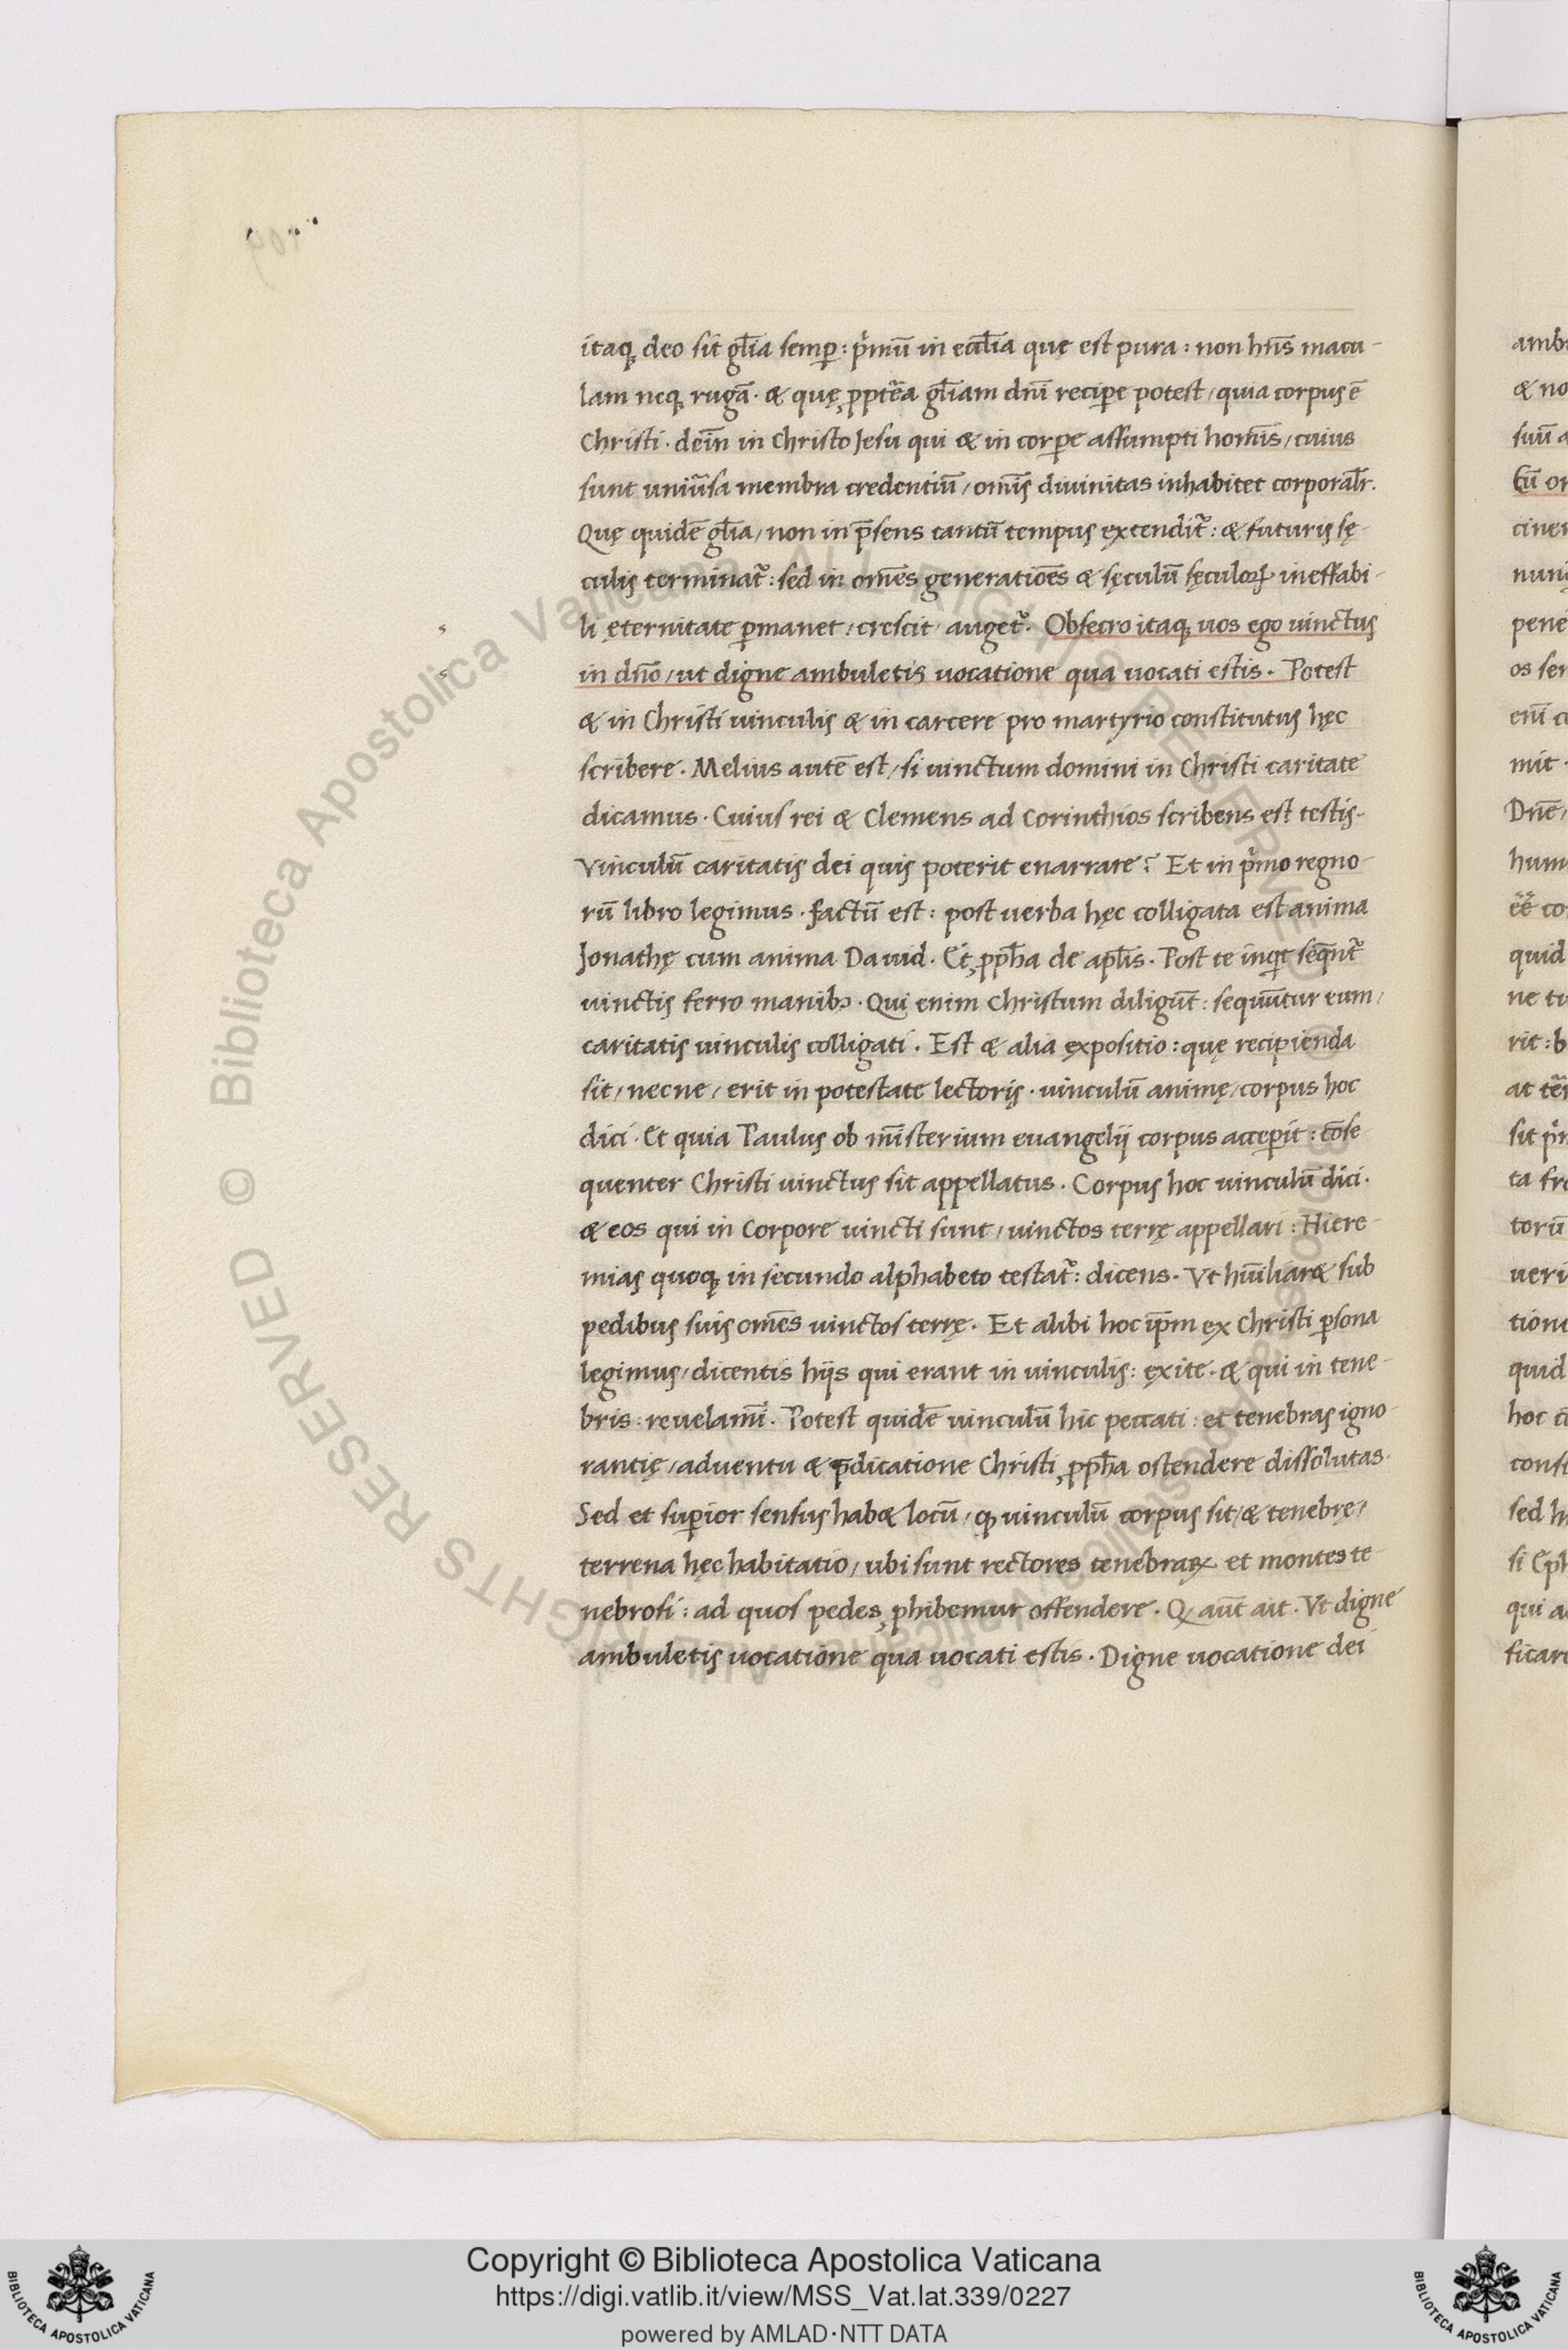 itaq deo sit gl̄ia semp̱: p̄mū in eccl̄ia quę est pura: non hn̄s macu-
lam neq rugā. & quę ꝓptēa gl̄iam dnī recipe potest / quia corpus ē
Christi. dein̄ in Christo Jesu qui & in corꝑe assumpti homīs / cuius
sunt uniūsa membra credentiū / omīs diuinitas inhabitet corporal̄r.
Quę quidē gl̄ia / non in p̄sens tantū tempus extendit᷑: & futuris sę-
culis terminat᷑: sed in omēs generatioēs & sęculū sęculoꝝ ineffabi-
li ęternitate ꝑmanet / crescit / auget᷑. Obsecro itaq uos ego uinctus
in dnō / ut digne ambuletis uocatione qua uocati estis. Potest
& in Christi uinculis & in carcere pro martyrio constitutus hęc
scribere. Melius autē est / si uinctum domini in Christi caritate
dicamus. Cuius rei & Clemens ad Corinthios scribens est testis.
Vinculū caritatis dei quis poterit enarrare? Et in p̄mo regno-
rū libro legimus. factū est: post uerba hęc colligata est anima
Jonathę cum anima Dauid. Et ꝓph̄a de apl̄is. Post te inqt seqn̄t᷑
uinctis ferro manibꝫ. Qui enim Christum diligūt: sequūtur eum /
caritatis uinculis colligati. Est & alia ęxpositio: quę recipienda
sit / necne / erit in potestate lectoris. uinculū animę / corpus hoc
dici. Et quia Paulus ob mīsterium euangelij corpus acceꝑit: cōse-
quenter Christi uinctus sit appellatus. Corpus hoc uinculū dici.
& eos qui in Corpore uincti sunt / uinctos terrę appellari: Hiere-
mias quoq in secundo alphabeto testat᷑: dicens. Vt hūiliar& sub
pedibus suis omēs uinctos terrę. Et alibi hoc ip̄m ex Christi ꝑsona
legimus / dicentis hijs qui erant in uinculis: ęxite. & qui in tene-
bris: reuelamī. Potest quidē uinculū hic peccati: et tenebras igno-
rantię / aduentu & p̄dicatione Christi ꝓph̄a ostendere dissolutas.
Sed et suꝑior sensus hab& locū / q uinculū corpus sit / & tenebrę /
terrena hęc habitatio / ubi sunt rectores tenebraꝝ et montes te-
nebrosi: ad quos pedes ꝓhibemur offendere. Q aūt ait. Vt digne
ambuletis uocatione qua uocati estis. Digne uocatione dei
© Biblioteca Apostolica Vaticana ALL RIGHTS RESERVED
Copyright © Biblioteca Apostolica Vaticana
https://digi.vatlib.it/view/MSS_Vat.lat.339/0227
powered by AMLAD·NTT DATA
BIBLIOTECA APOSTOLICA VATICANA
BIBLIOTECA APOSTOLICA VATICANA